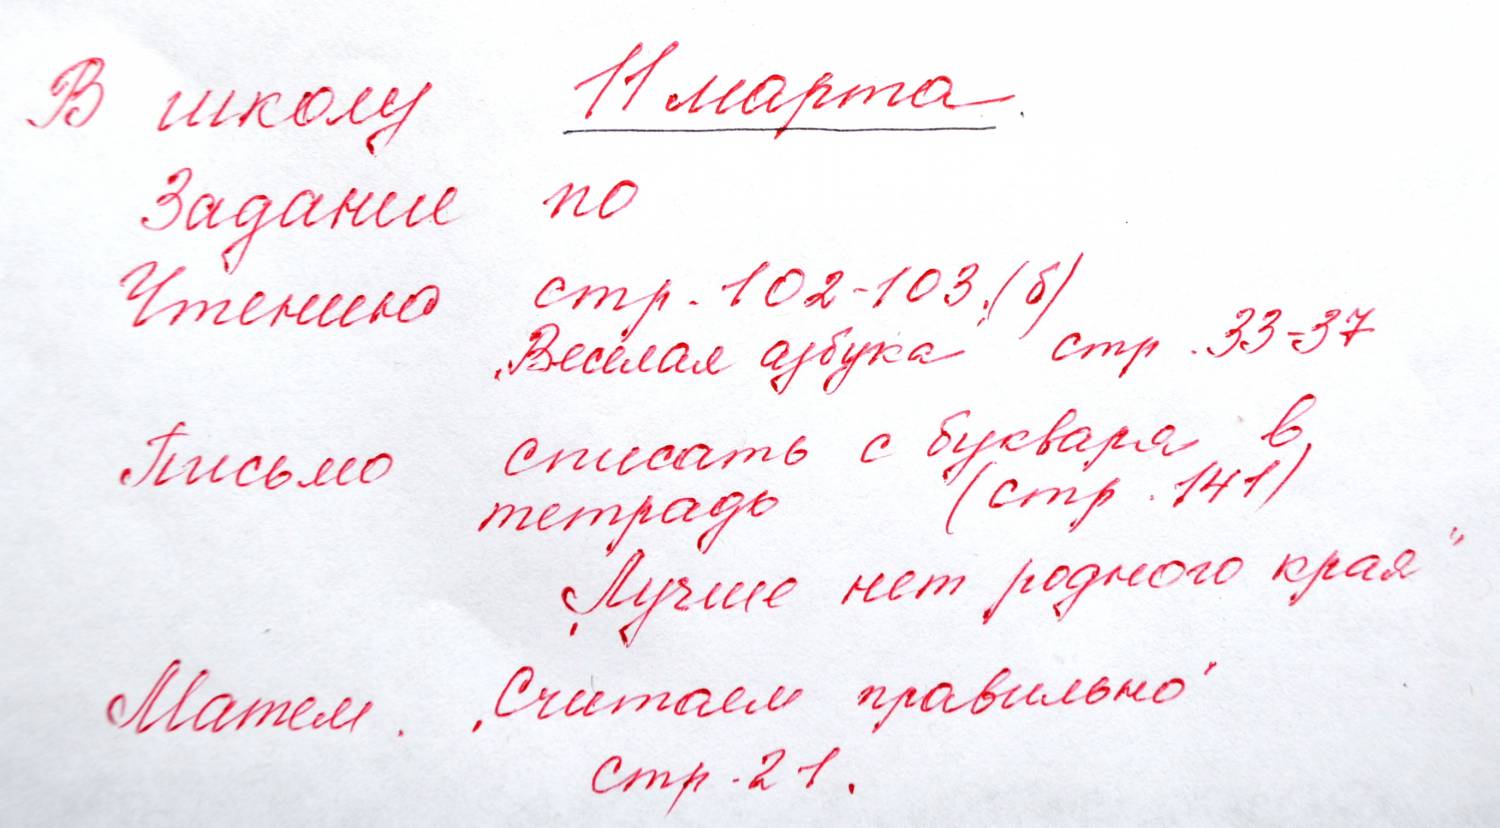 В школу 11 марта.
Задание по
Чтению стр. 102-103.(б)
"Весёлая азбука" стр. 33-37
Письмо списать с букваря в
тетрадь (стр. 141)
"Лучше нет родного края"
Матем. "Считаем правильно"
стр. 21.